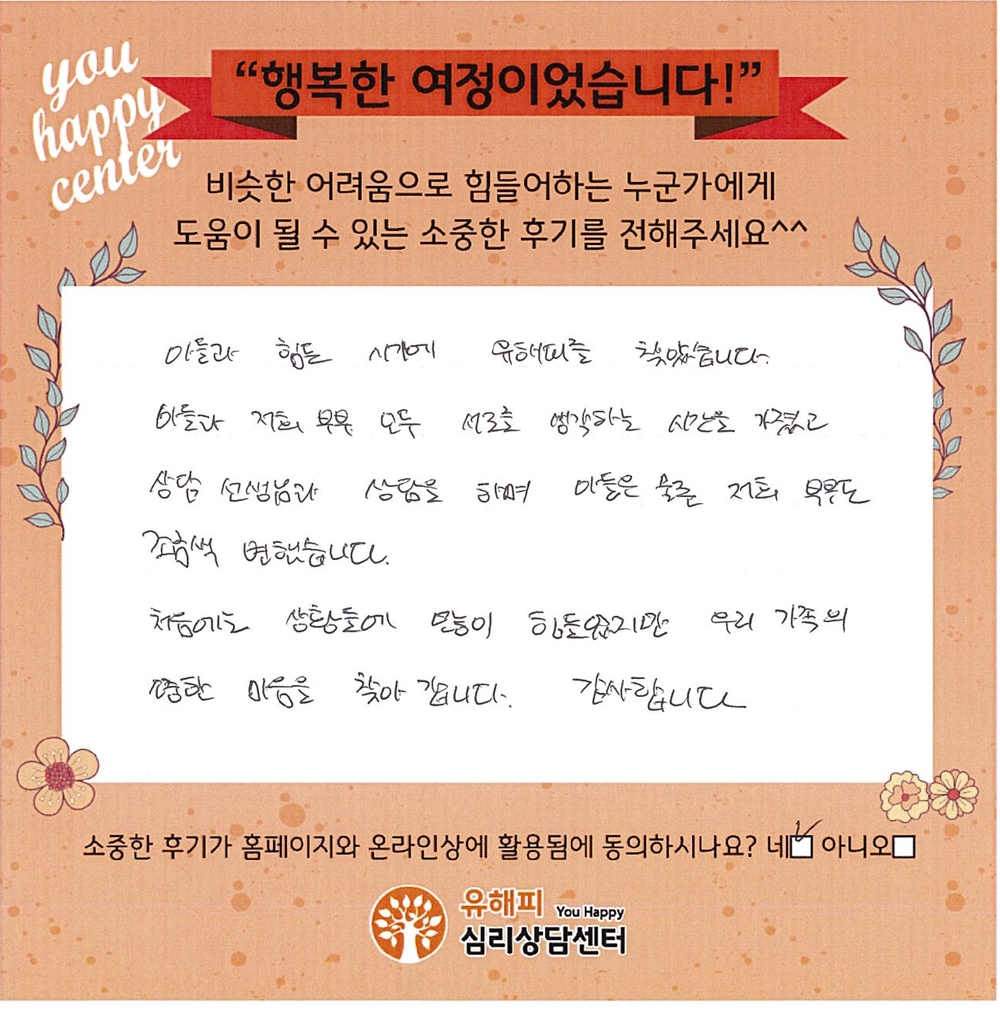 you
happy
center
“행복한 여정이었습니다!”
비슷한 어려움으로 힘들어하는 누군가에게
도움이 될 수 있는 소중한 후기를 전해주세요^^
아들과 힘든 시기에 유해피를 찾았습니다.
아들과 저희 부부 모두 서로를 생각하는 시간을 가졌고
상담 선생님과 상담을 하며 아들은 물론 저희 부부도
조금씩 변했습니다.
처음에는 상황들에 많이 힘들었지만 우리 가족의
소중한 마음을 찾아 갑니다. 감사합니다
소중한 후기가 홈페이지와 온라인상에 활용됨에 동의하시나요? 네 아니오
유해피 You Happy
심리상담센터